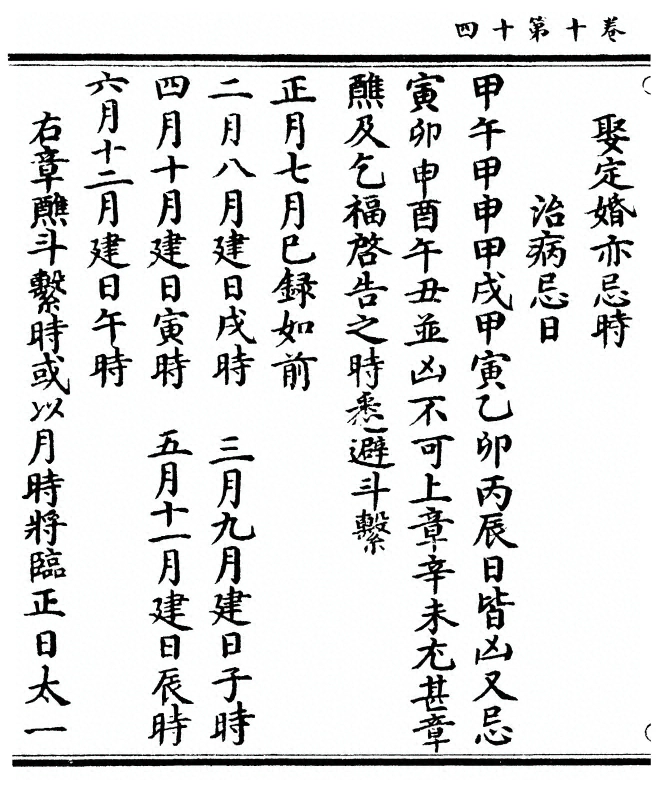 卷十第十四
娶定婚亦忌時
治病忌日
甲午甲申甲戌甲寅乙卯丙辰日皆凶又忌
寅卯申酉午丑並凶不可上章辛未尤甚章
醮及乞福啓告之時悉避斗繫
正月七月已録如前
二月八月建日戌時 三月九月建日子時
四月十月建日寅時 五月十一月建日辰時
六月十二月建日午時
右章醮斗繫時或以月時將臨正日太一